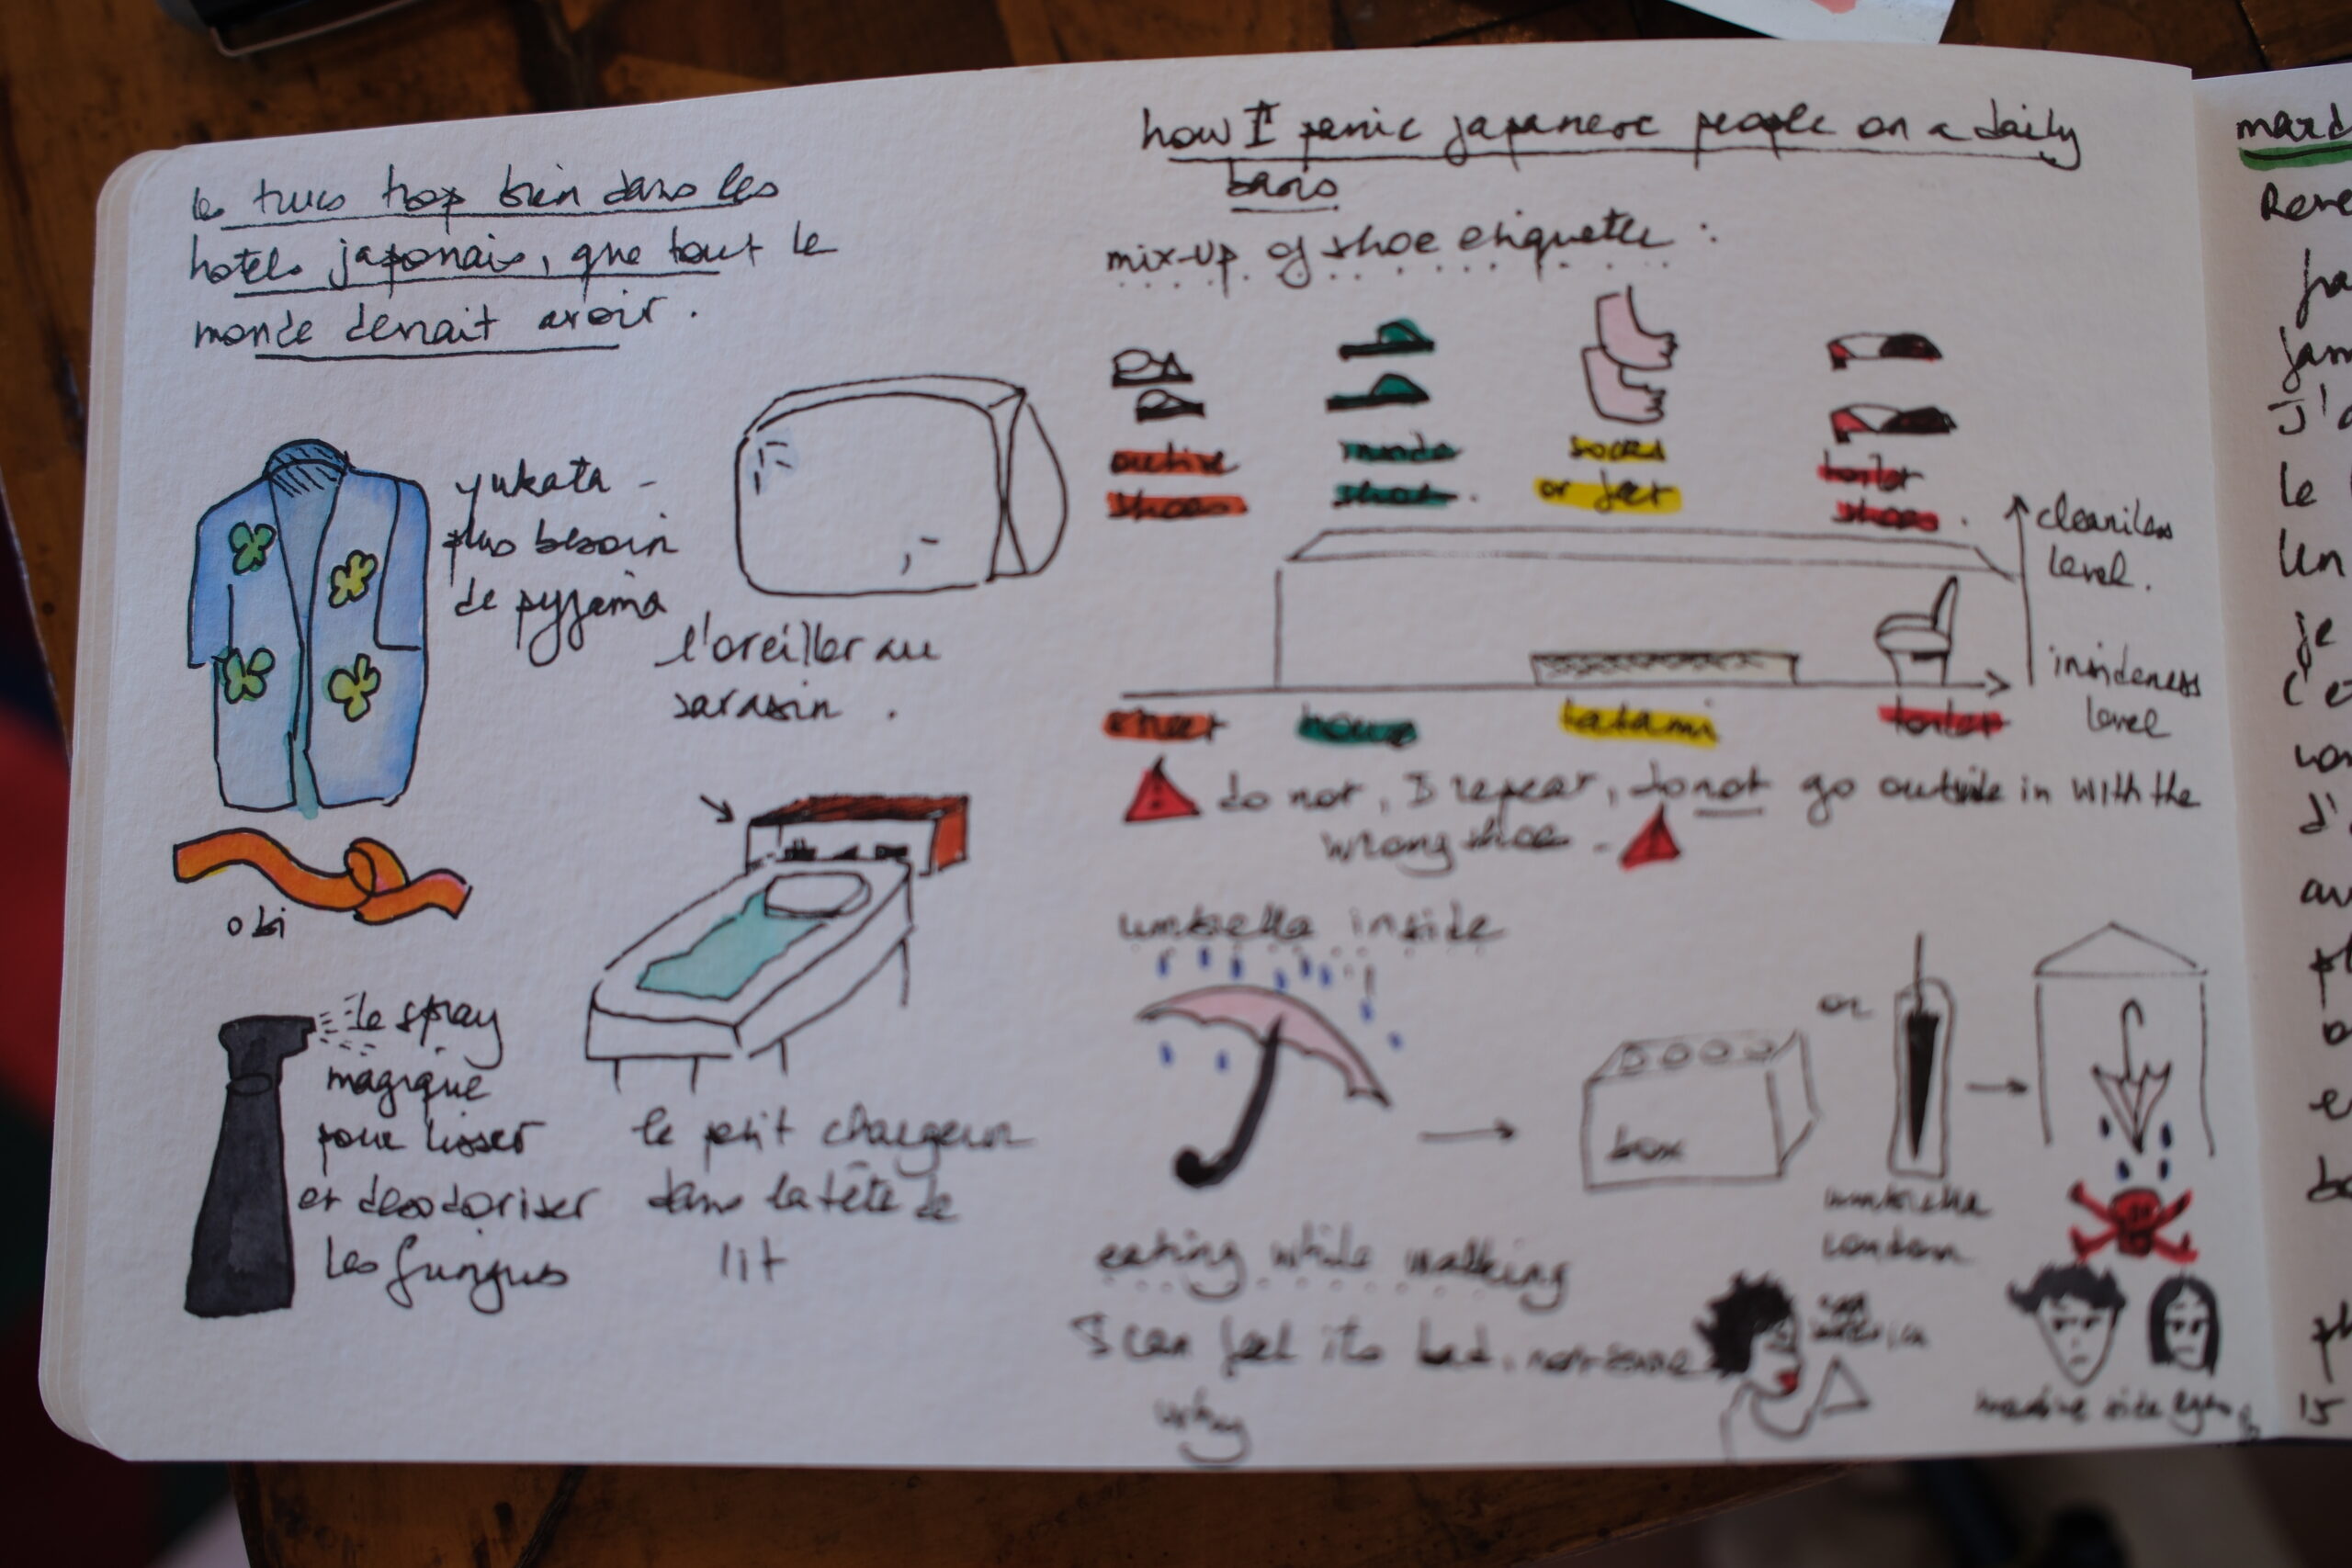 les trucs trop bien dans les
hotels japonais, que tout le
monde devrait avoir.
yukata -
plus besoin
de pyjama
l'oreiller au
sarasin.
obi
le spray
magique
pour lisser
et desodoriser
les fungus
le petit chargeur
dans la tête de
lit
how I panic japanese people on a daily
basis
mix-up of shoe etiquette :
outside
shoes
inside
shoes.
socks
or feet
toilet
shoes.
cleaniless
level.
insideness
level
street
house
tatami
toilet
do not, I repeat, do not go outside in with the
wrong shoe.
umbrella inside
box
or
umbrella
condom
eating while walking
I can feel its bad.
why
massive side eyes
mard
le
Un
je
15